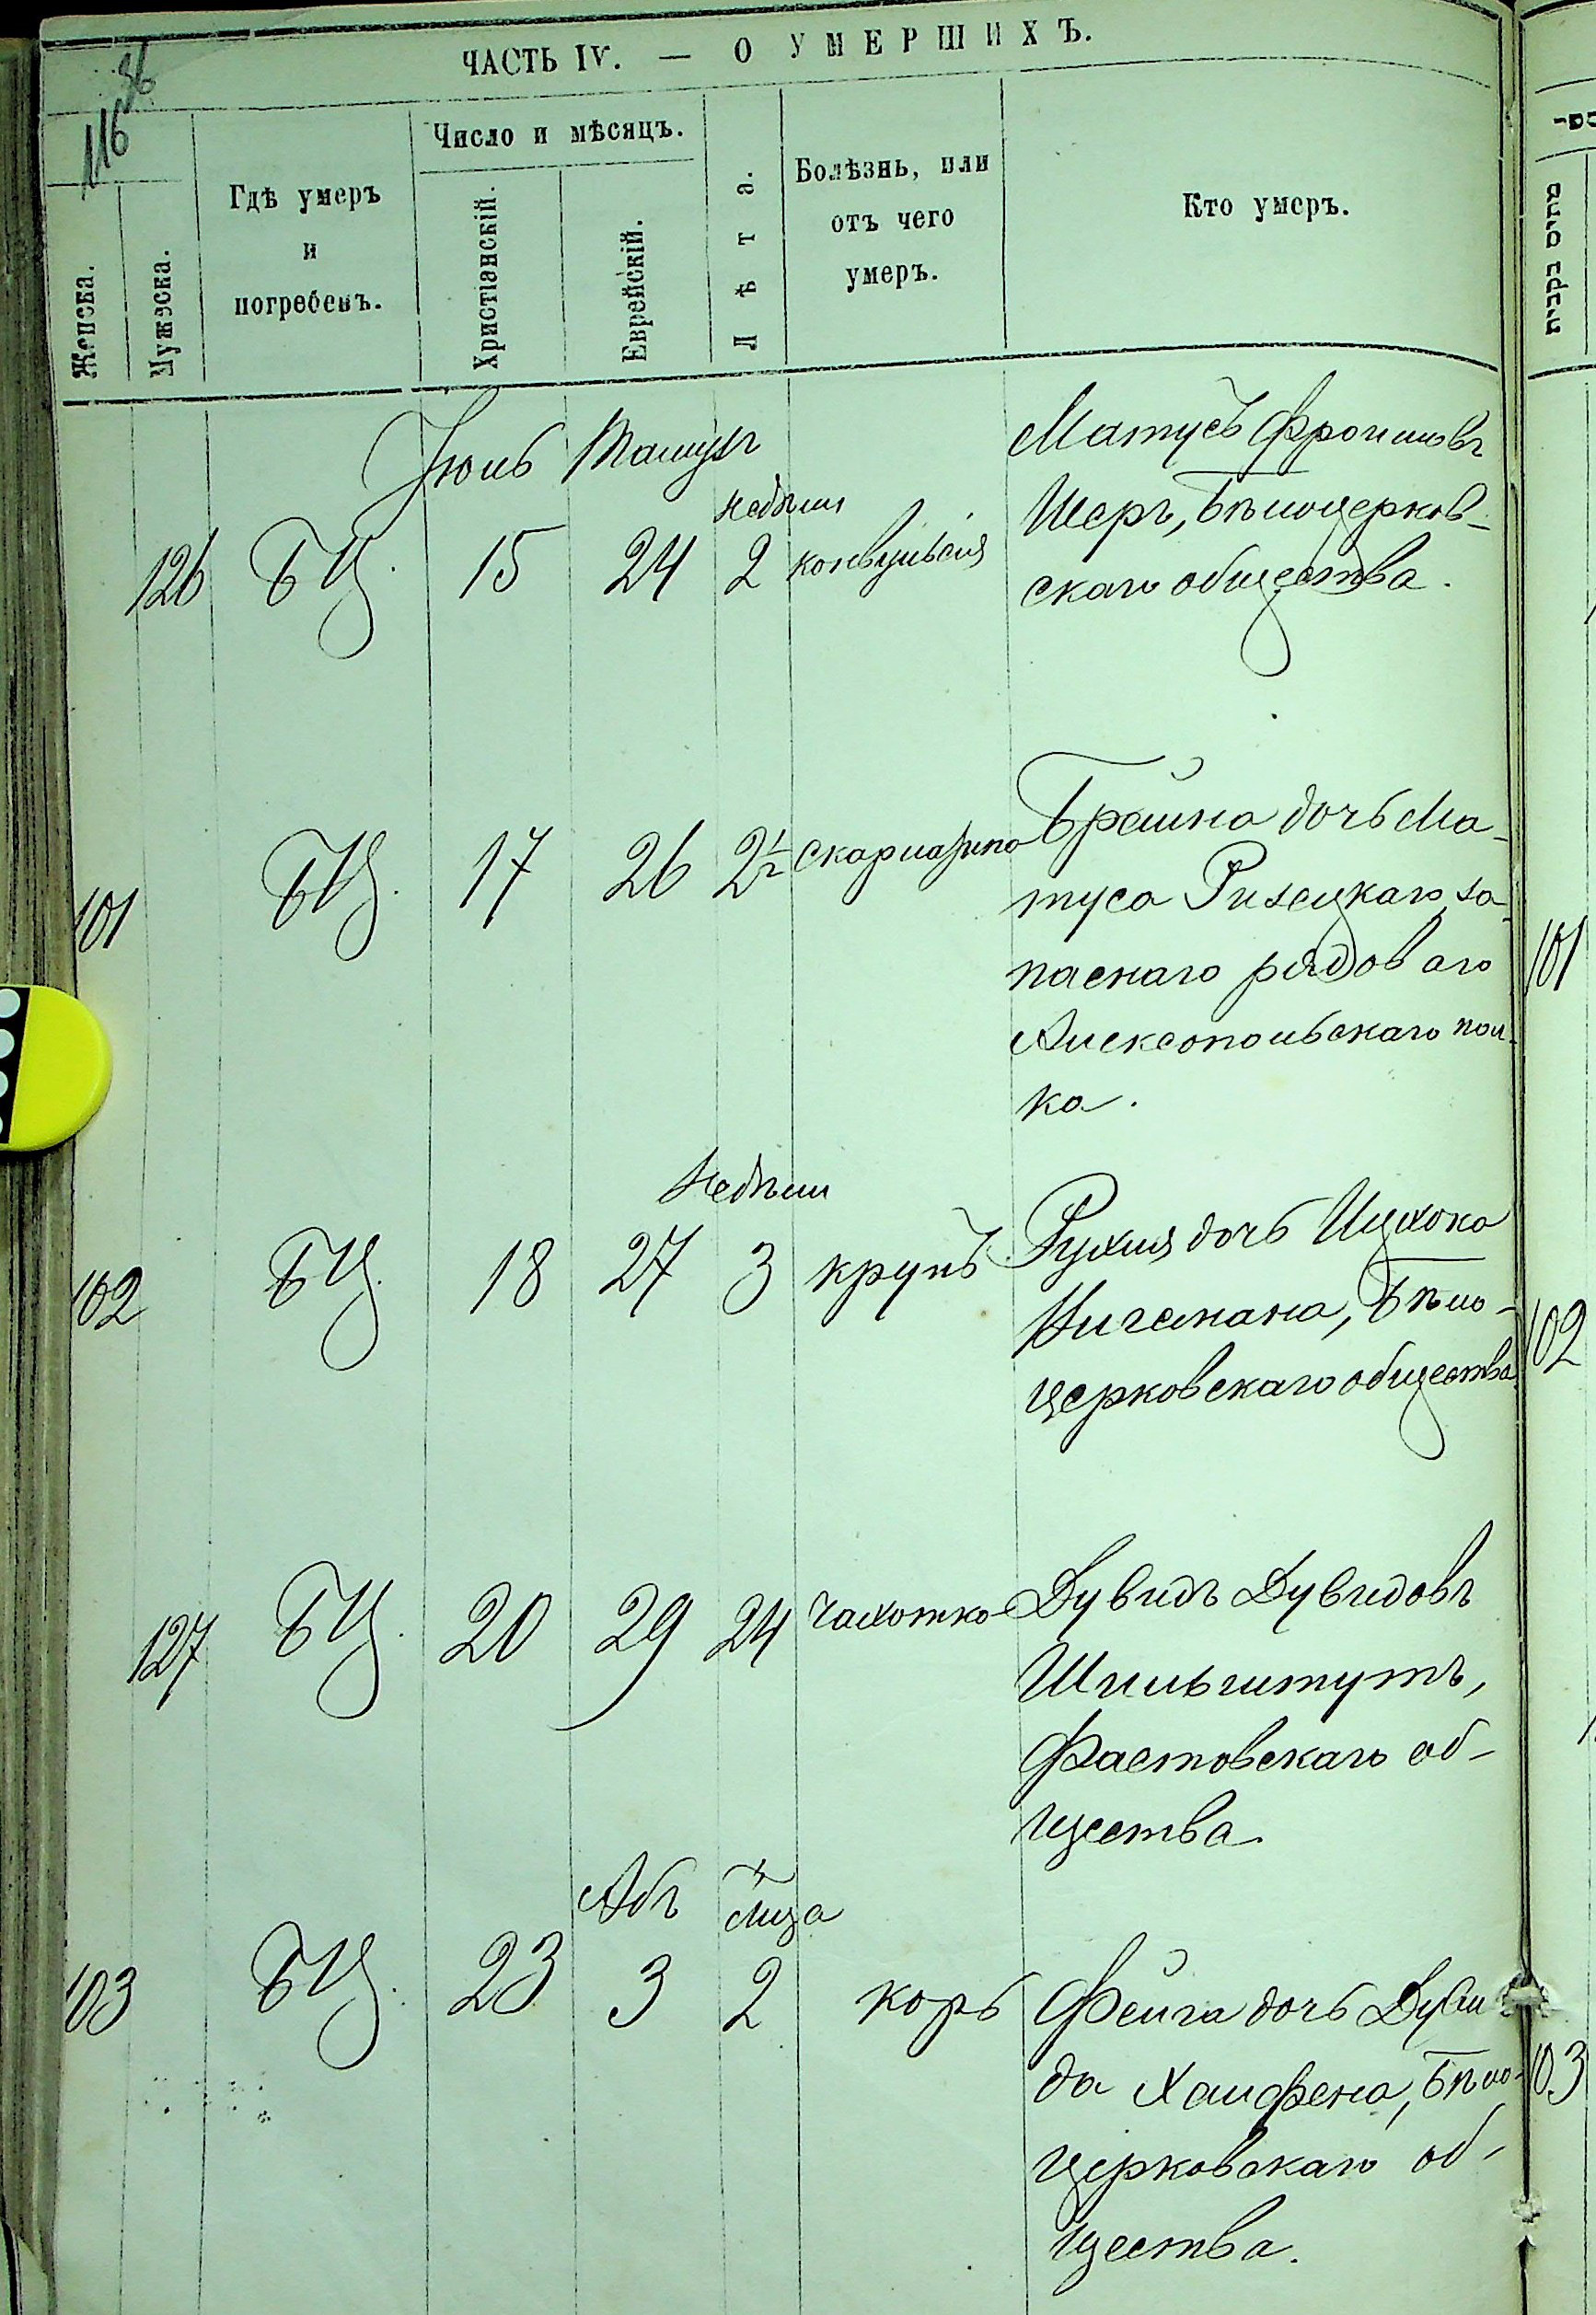 ЧАСТЬ IV. — О УМЕРШИХЪ.
116
Женска.
Мужеска.
Гдѣ умеръ
и
погребенъ.
Число и мѣсяцъ.
Христіанскій.
Еврейскій.
Лѣта.
Болѣзнь, или
отъ чего
умеръ.
Кто умеръ.
Тамузъ
недѣли
126 БЦ. 15 24 2 конвульсія
Матусъ Фроимовъ
Шеръ, Бѣлоцерков-
скаго общества.
101 БЦ. 17 26 2½ скарлатина
Брейна дочь Ма-
туса Ризецкаго, за-
паснаго рядового
Алексопольскаго пол-
ка.
недѣли
102 БЦ. 18 27 3 крупъ
Рухля дочь Ицхока
Бѣло-
церковскаго общества
102
127 БЦ. 20 29 24 чахотка
Дувидъ Дувидовъ
Фастовскаго об-
щества.
Абъ
мца
103 БЦ. 23 3 2 корь
Фейга дочь Дуви
да Хайфена, Бѣло-
церковскаго об-
щества.
101
103